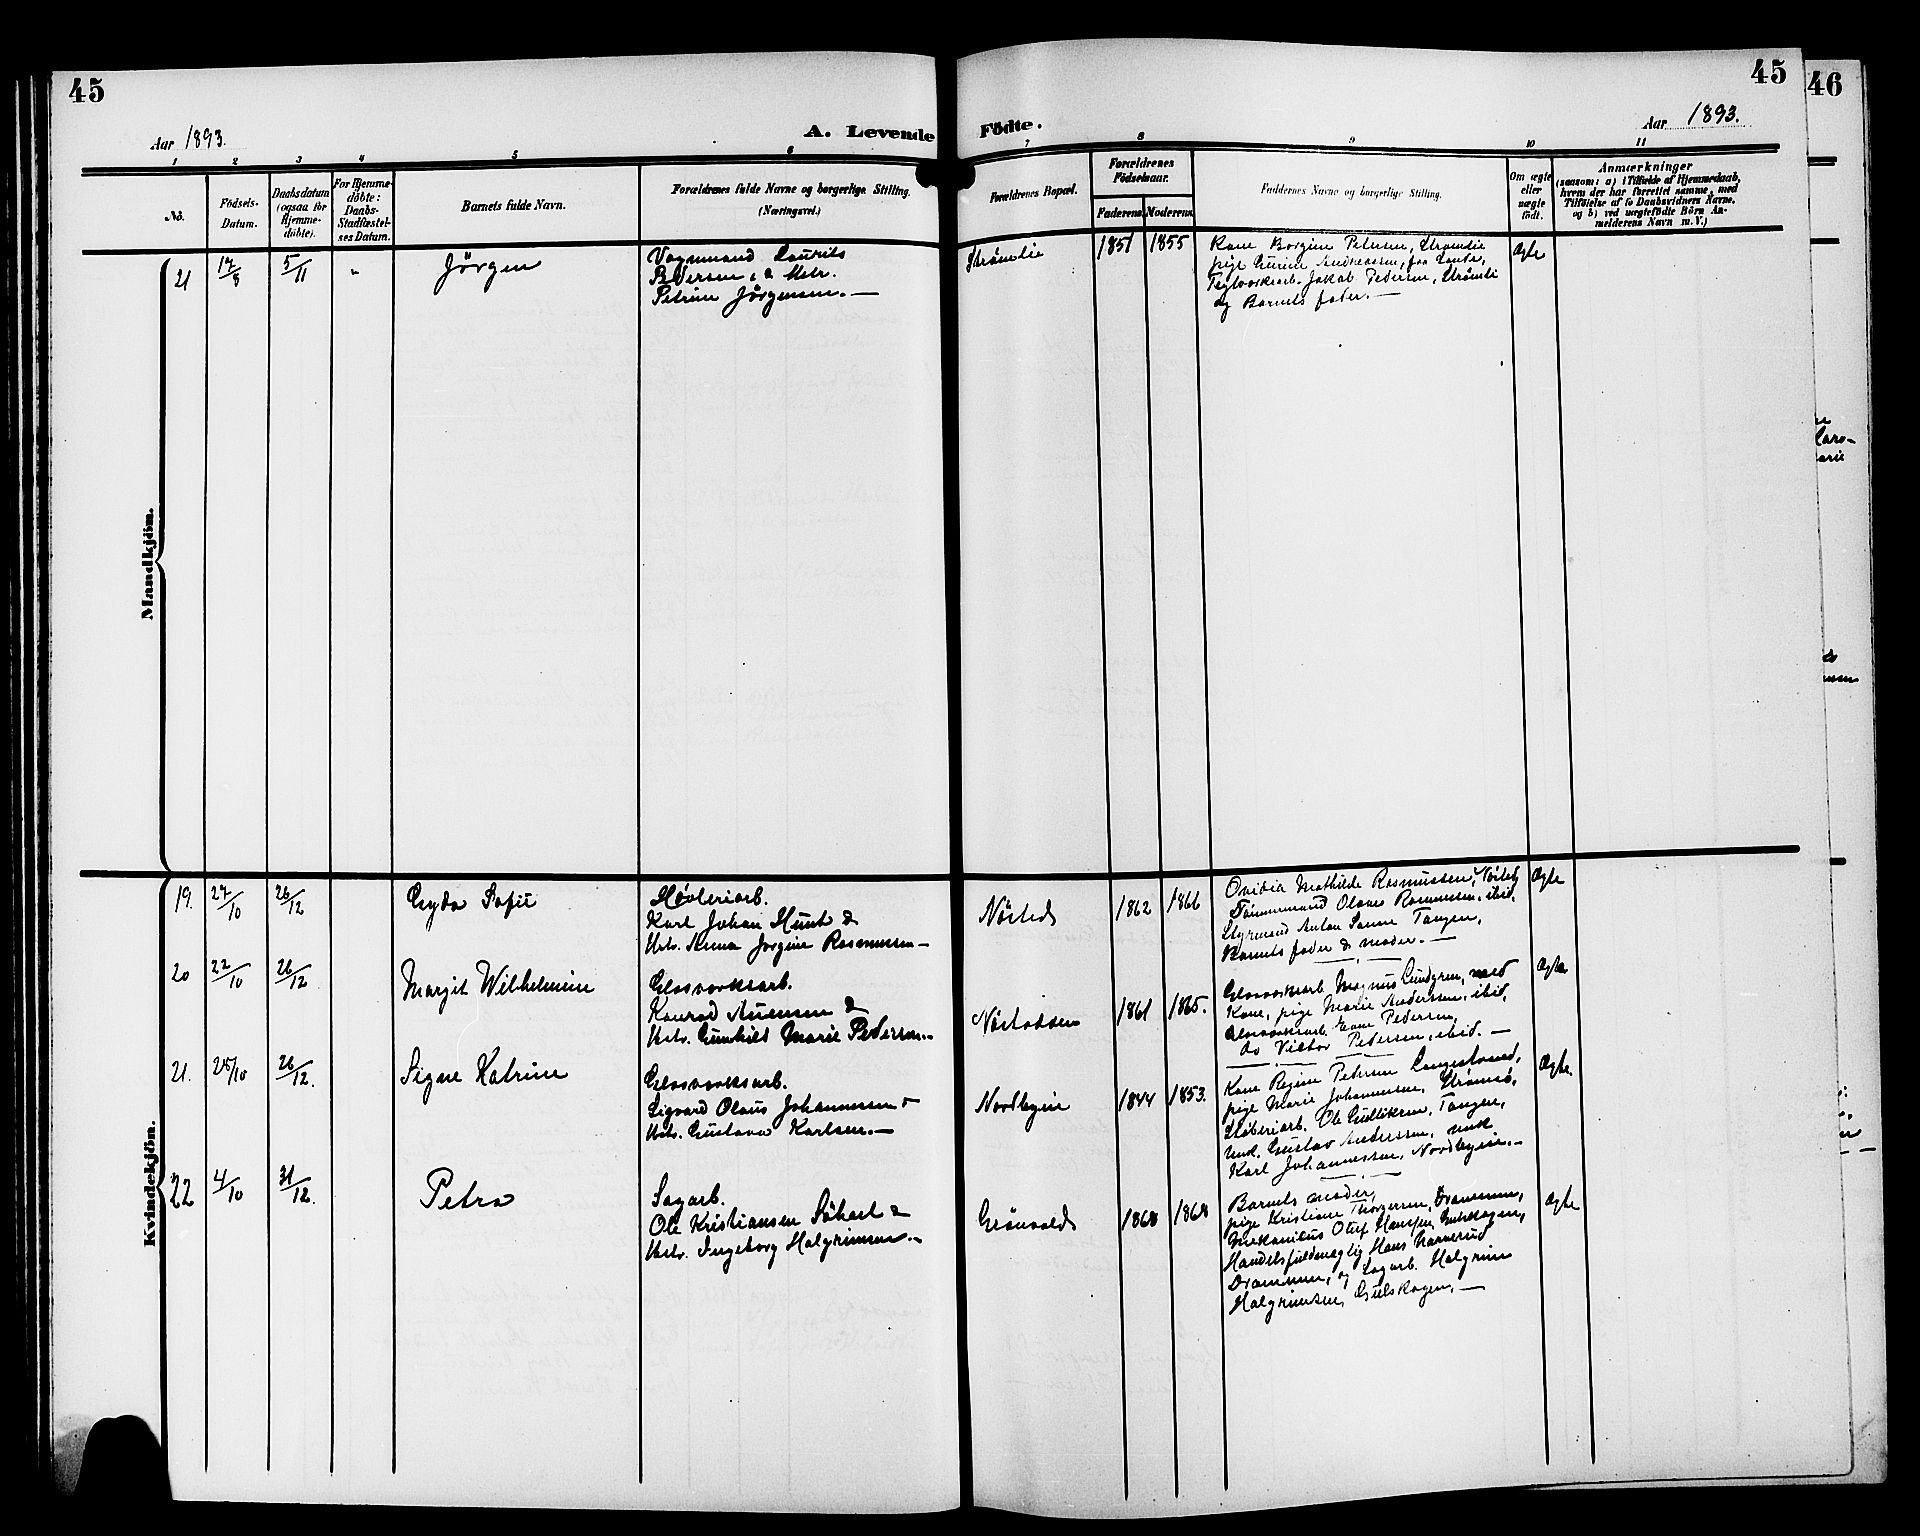 45
45
46
Aar 1893.
A. Levende
Födte.
Aar 1893.
1 2 3 4 5 6 7 8 9 10 11
No.
Födsels-
Datum.
Daabsdatum
(ogsaa for
Hjemme-
döbte).
For Hjemme-
döbte:
Daabs-
Stadfæstel-
ses Datum.
Barnets fulde Navn.
Forældrenes fulde Navne og borgerlige Stilling.
(Næringsvei.)
Forældrenes Bopæl.
Forældrenes
Födselsaar.
Faderens.
Moderens.
Faddernes Navne og borgerlige Stilling.
Om ægte
eller
uægte
födt.
Anmærkninger
(saasom: a) i Tilfælde af Hjemmedaab,
hvem der har forrettet samme, med
Tilföielse af to Daabsvidners Navne,
og b) ved uægtefödte Börn An-
melderens Navn m. V.)
Mandkjön.
21 17/8 5/11 " Jörgen
Vognmand Laurits
Pedersen, & Hstr.
Petrine Jörgensen.—
Strömlie 1851 1855
Kone Borgine Petersen, Strømlie
pige Gurine Andreassen, fra Lande,
Teglværksarb. Jakob Pedersen, Strømli
og Barnets fader.—
Ægte
Kvindekjön.
19. 27/10 26/12 Gyda Sofie
Høvleriarb.
Karl Johan Hunt &
Hstr. Anna Jorgine Rasmussen—
Nösteds 1862 1866
Ovidia Mathilde Rasmussen, Nösted,
Tömmermand Olaves Rasmussen, ibid,
Styrmand Anton Sanne Tangen,
Barnets fader & moder.—
Ægte
20 22/10 26/12 Margit Wilhelmine
Glasværksarb.
Konrad Auensen &
Hstr. Gunhild Marie Pedersen.—
Nöstodden 1861 1865.
Glasværksarb. Magnus Lundgren, med
Kone, pige Marie Anderssen, ibid,
Glasværksarb. Pedersen,
do Victor Petersen, ibid.—
Ægte
21. 28/10 26/12. Signe Katrine
Glasværksarb.
Sigvard Olaus Johannessen &
Hstr. Gustava Karlsen.—
Nordbyeie 1844 1853.
Kone Regine Petersen Langestrand,
pige Marie Johannessen, Strømsö,
Støberiarb. Ole Gulliksen, Tangen,
Unk. Gustav Anderssen, unk
Karl Johannessen, Nordbyeie.—
Ægte.
22 4/10 31/12. Petra
Sagarb.
Ole Kristiansen Søhart &
Hstr. Ingeborg Halgrimsen.—
Grönvolds 1868 1868
Barnets moder,
pige Kristiane Thorgersen, Drammen,
Mekanikus Oluf Hanssen, Gulskogen,
Handelsfuldmægtig Hans Narverud
Drammen, og Sagarb. Halgrim
Halgrimsen, Gulskogen.—
Ægte